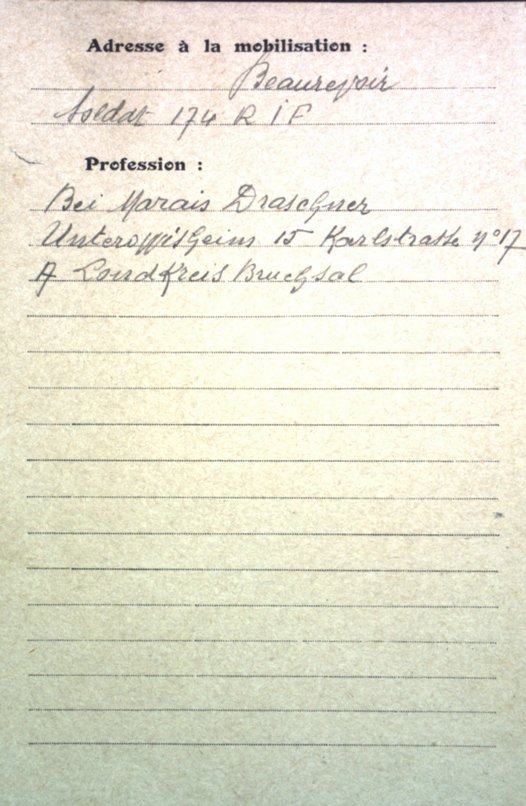 Adresse à la mobilisation :
Beaurepair
Soldat 174 R I F
Profession :
Bei Marais Draschner
Unterowisheim 15 Karlstraße N°17
A Landkreis Bruchsal